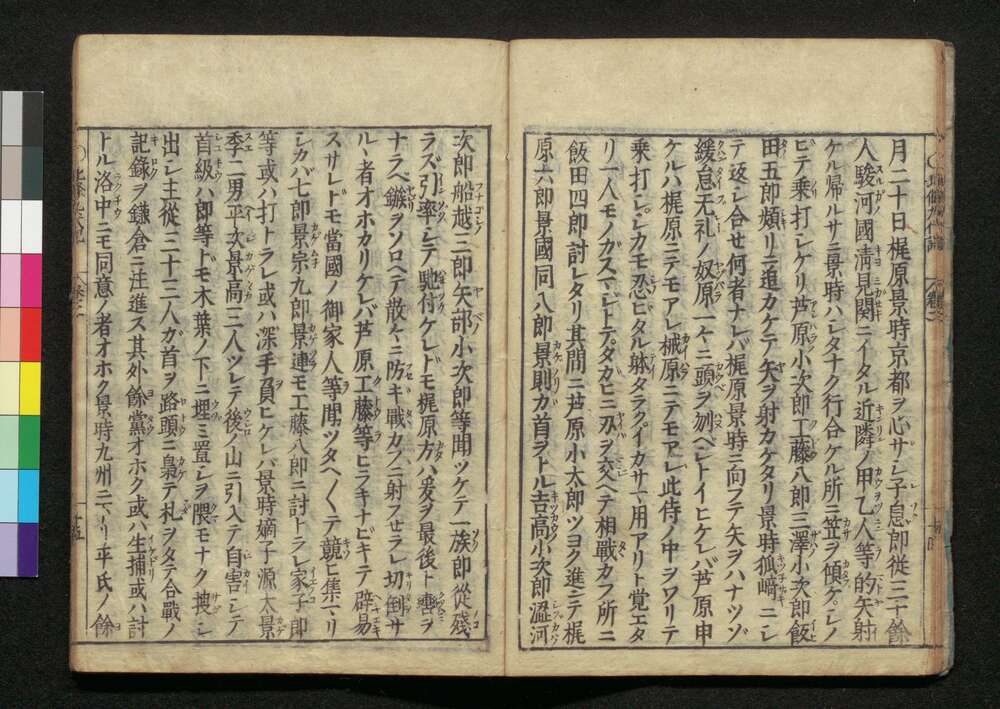 月二十日梶原景時京都ヲ心サシ子息郎從三十餘
人駿河國淸見關ニイタル近隣ノ甲乙人等的矢射
ケル帰ルサニ景時ハシタナク行合ケル所ニ笠ヲ傾ケシノ
ビテ乗打シケリ芦原小次郎工藤八郎三澤小次郎飯
田五郎頻リニ追カケテ矢ヲ射カケタリ景時狐﨑ニシ
テ返シ合せ何者ナレバ梶原景時ニ向フテ矢ヲハナツゾ
緩怠无礼ノ奴原一ケニ頭ヲ刎ベシトイヒケレバ芦原申
ケルハ梶原ニテモアレ械原ニテモアレ此侍ノ中ヲワリテ
乗打シシカモ忍ビタル躰タラクイカサマ用アリト覚エタ
リ一人モノガスベシトテタガヒニ刄ヲ交ヘテ相戰カフ所ニ
飯田四郎討レタリ其間ニ芦原小太郎ツヨク進シテ梶
原六郎景國同八郎景則カ首ヲトル吉高小次郎澁河
次郎船越三郎矢部小次郎等聞ツケテ一族郎從殘
ラズ引率シテ馳付ケレドモ梶原方ハ爰ヲ最後ト轡ヲ
ナラベ鏃ヲソロヘテ散ケニ防キ戰カフニ射フセラレ切倒サ
ルヽ者オホカリケレバ芦原工藤等ヒラキナビキテ辟易
スサレドモ當國ノ御家人等聞ツタヘ〱テ競ヒ集マリ
シカバ七郎景宗九郎景連モ工藤八郎ニ討トラレ家子郎
等或ハ打トラレ或ハ深手負ヒケレバ景時嫡子源太景
季二男平次景高三人ツレテ後ノ山ニ引入テ自害シテ
首級ハ郎等ドモ木葉ノ下ニ埋ミ置シヲ隈モナク捜シ
出シ主從三十三人ガ首ヲ路頭ニ梟テ札ヲタテ合戰ノ
記錄ヲ鎌倉ニ注進ス其外餘黨オホク或ハ生捕或ハ討
トル洛中ニモ同意ノ者オオク景時九州ニマリ平氏ノ餘